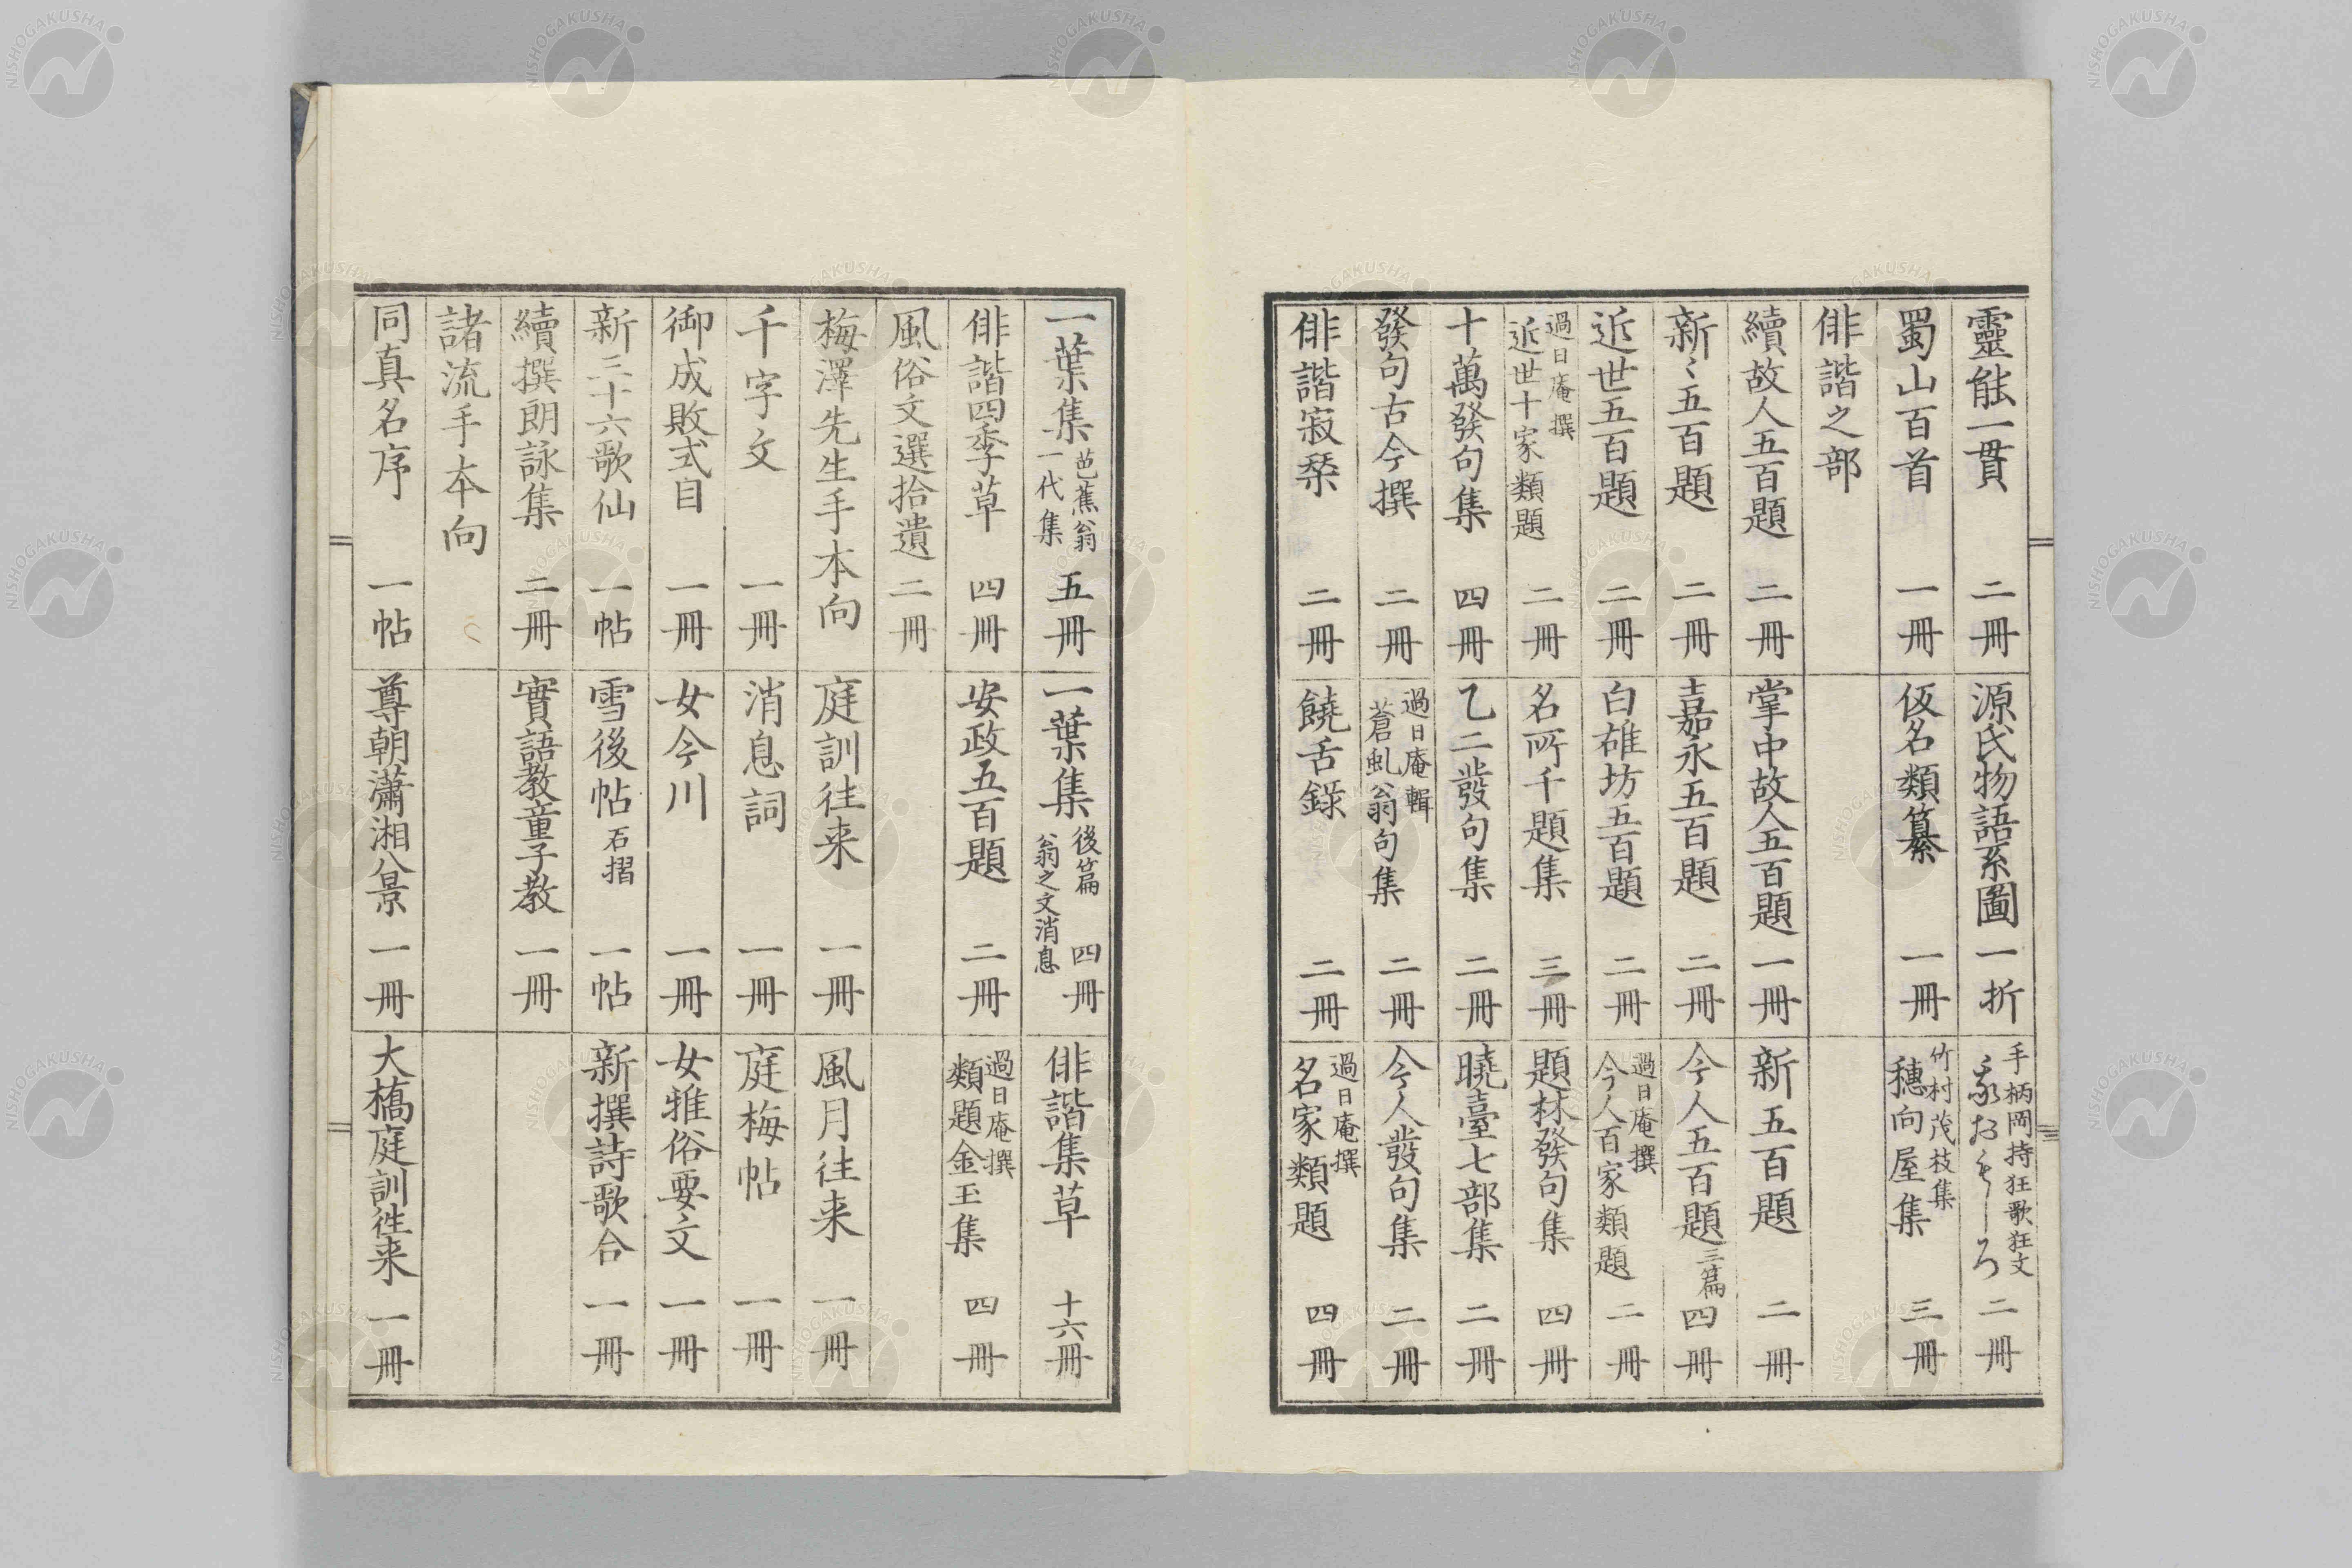 靈能一貫 二冊
源氏物語系圖 一折
手柄岡持狂歌狂文
二冊
蜀山百首 一冊
仮名類纂 一冊
竹村茂枝集
穗向屋集 三冊
俳諧之部
續故人五百題 二冊
掌中故人五百題 一冊
新五百題 二冊
新〻五百題 二冊
嘉永五百題 二冊
今人五百題 三篇 四冊
近世五百題 二冊
白雄坊五百題 二冊
過日庵撰
今人百家類題 二冊
過日庵撰
近世十家類題 二冊
名所千題集 三冊
題林發句集 四冊
十萬發句集 四冊
乙二發句集 二冊
曉臺七部集 二冊
發句古今撰 二冊
過日庵輯
蒼虬翁句集 二冊
今人發句集 二冊
俳諧寂栞 二冊
饒舌錄 二冊
過日庵撰
名家類題 四冊
一葉集 芭蕉翁
一代集 五冊
一葉集 後篇
翁之文消息 四冊
俳諧集草 十六冊
俳諧四季草 四冊
安政五百題 二冊
過日庵撰
類題金玉集 四冊
風俗文選拾遺 二冊
梅澤先生手本向
庭訓往来 一冊
風月往来 一冊
千字文 一冊
消息詞 一冊
庭梅帖 一冊
御成敗式目 一冊
女今川 一冊
女雅俗要文 一冊
新三十六歌仙 一帖
雪後帖 石摺 一帖
新撰詩歌合 一冊
續撰朗詠集 二冊
實語教童子教 一冊
諸流手本向
同真名序 一帖
尊朝瀟湘八景 一冊
大橋庭訓往来 一冊
NISHOGAKUSHA